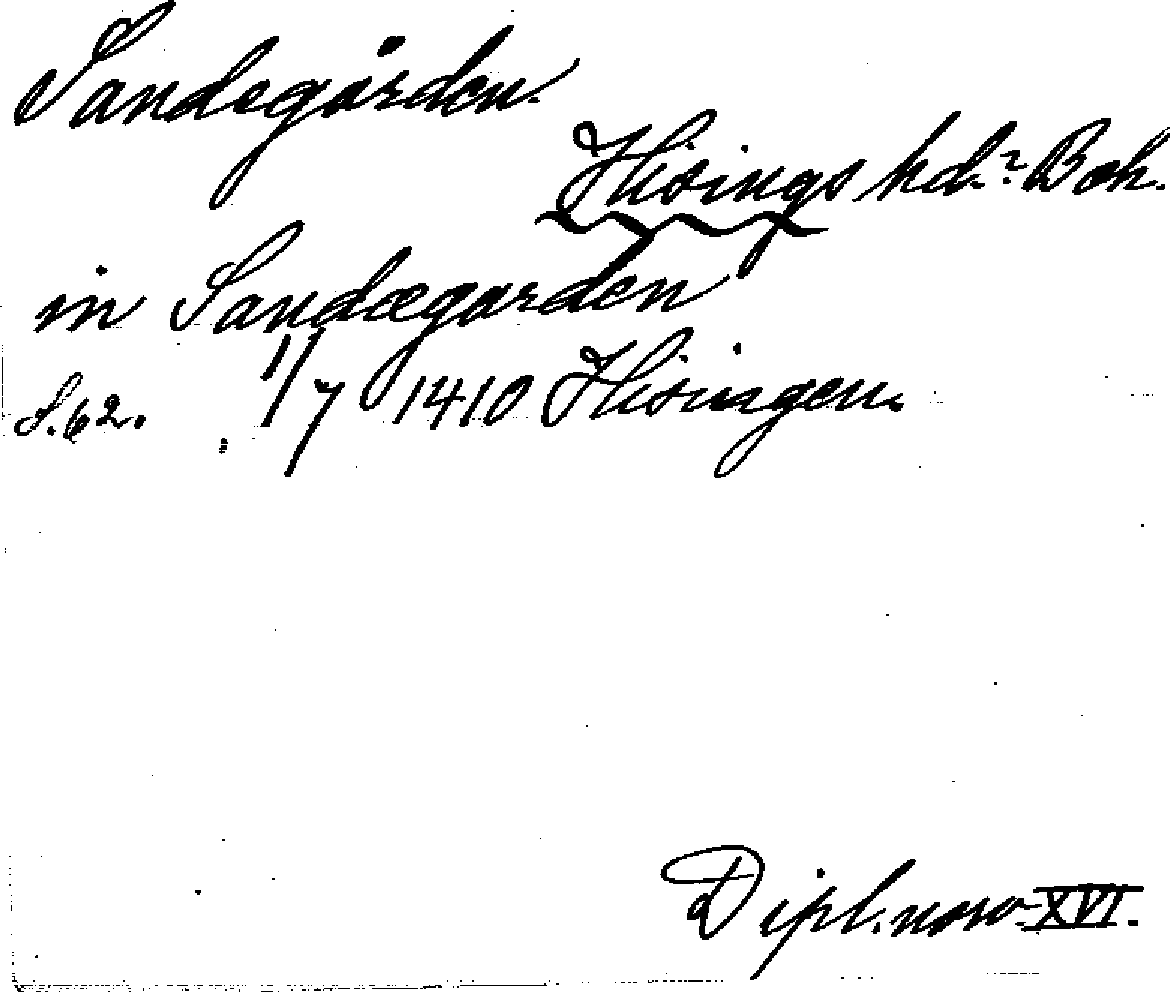 Sandegården.
Hisings hd.? Boh.
in Sandægarden
S. 62. 1/7 1410 Hisingen.
Dipl. norv. XVI.